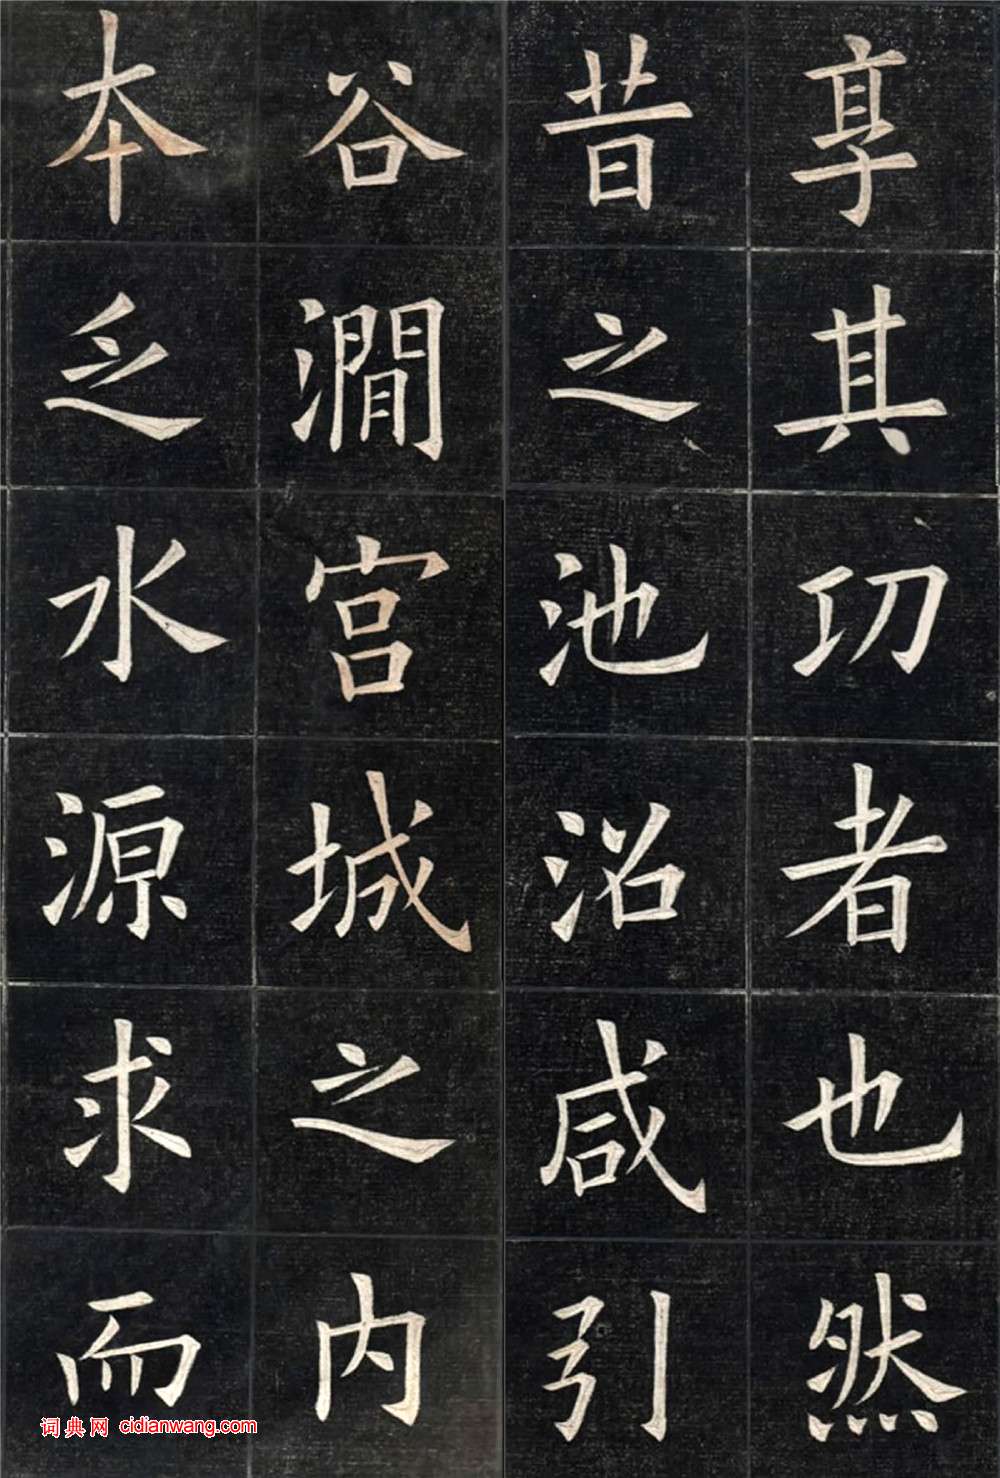 享其功者也然
昔之池沼咸引
谷澗宮城之内
本乏水源求而
词典网 cidianwang.com